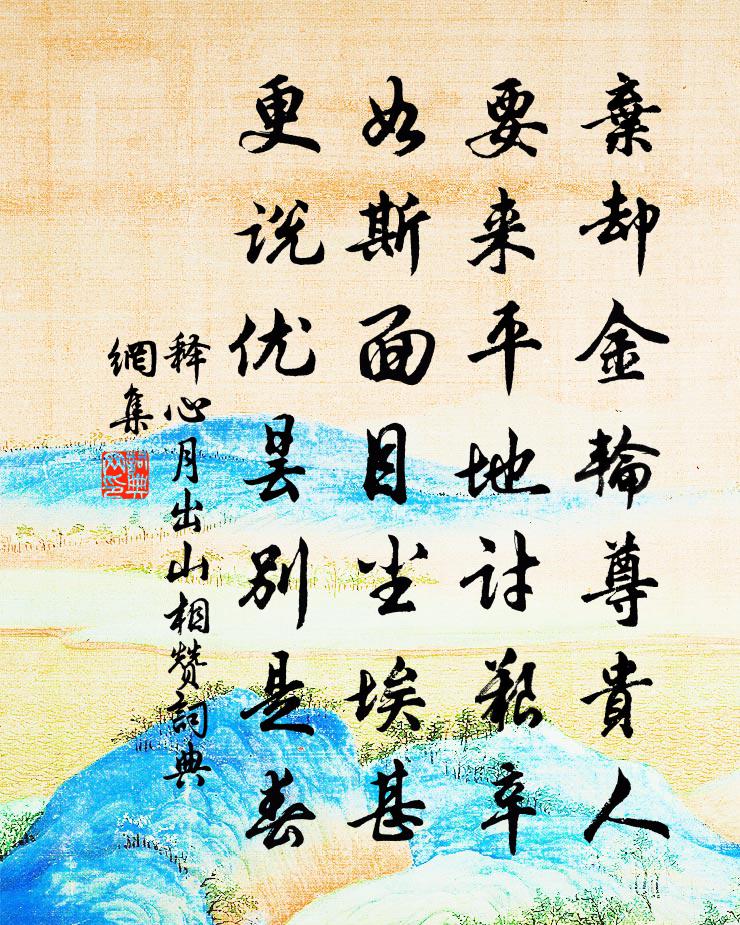 棄却金輪尊貴人
要来平地讨艰辛
如斯面目尘埃甚
更说优昙别是春
释心月出山相赞詞典
網集
詞典
网印